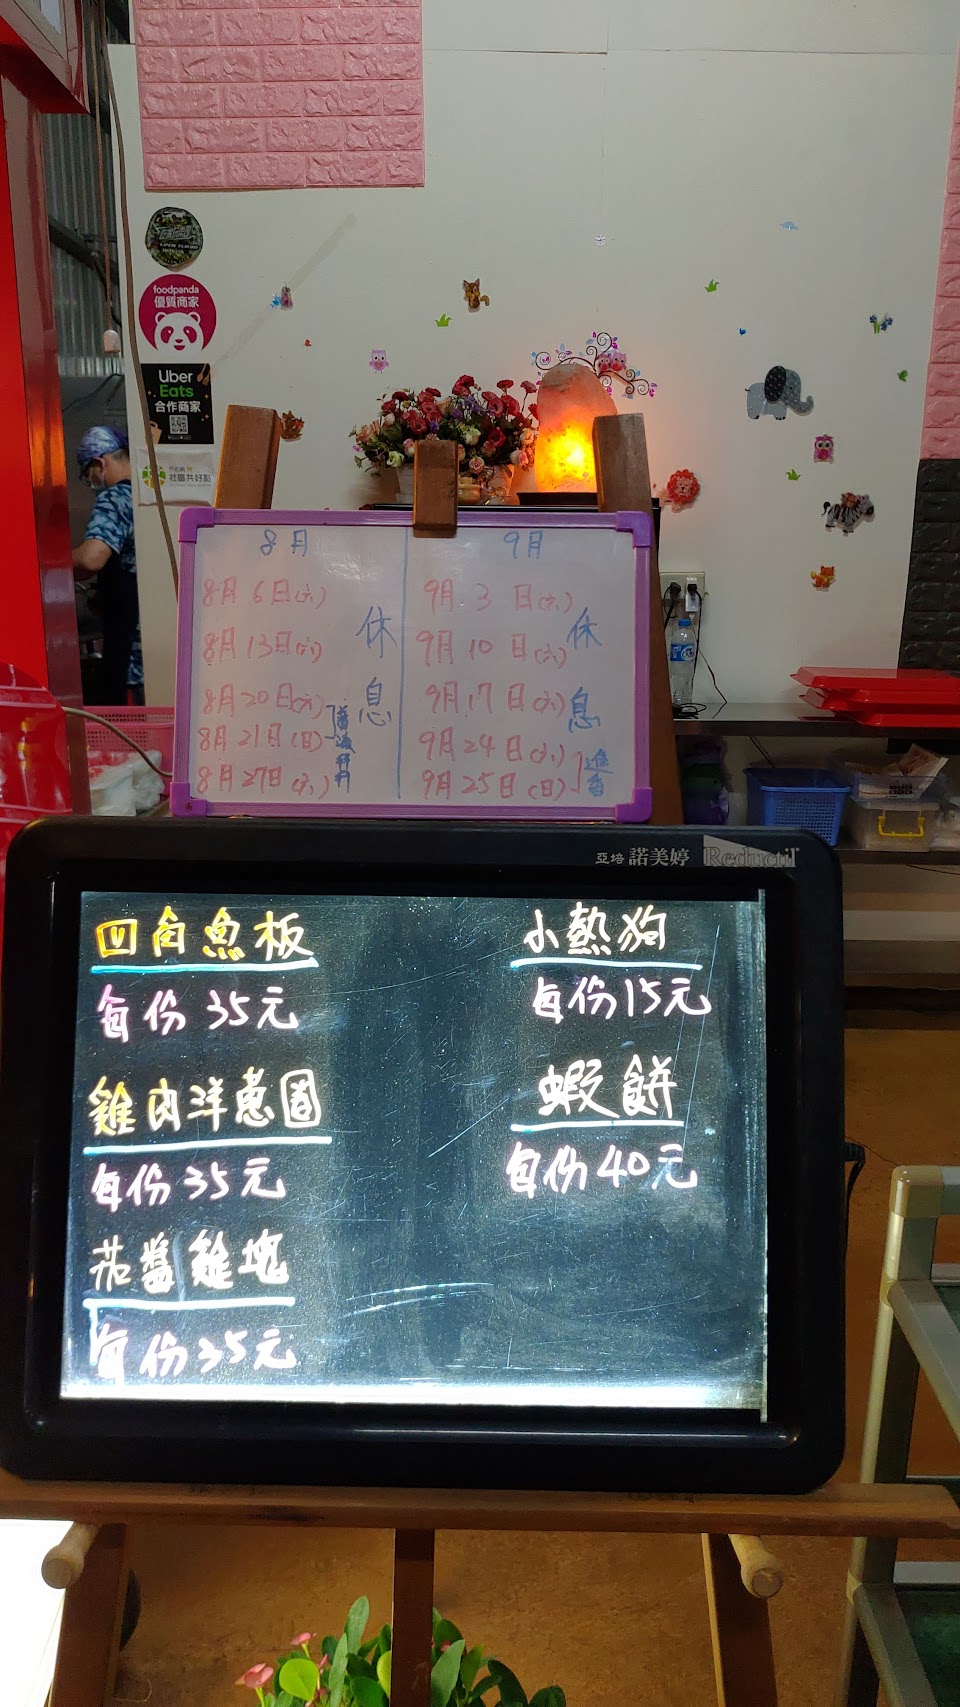 foodpanda
優質商家
Uber
Eats
合作商家
社區共好點
8月
8月6日(六)
8月13日(六)
8月20日(六)
8月21日(日)
8月27日(六)
休息
9月
9月3日(六)
9月10日(六)
9月17日(六)
9月24日(六)
9月25日(日)
休息
進香
亞培 諾美婷 Reductil
四角魚板
每份35元
雞肉洋蔥圈
每份35元
茄醬雞塊
每份35元
小熱狗
每份15元
蝦餅
每份40元